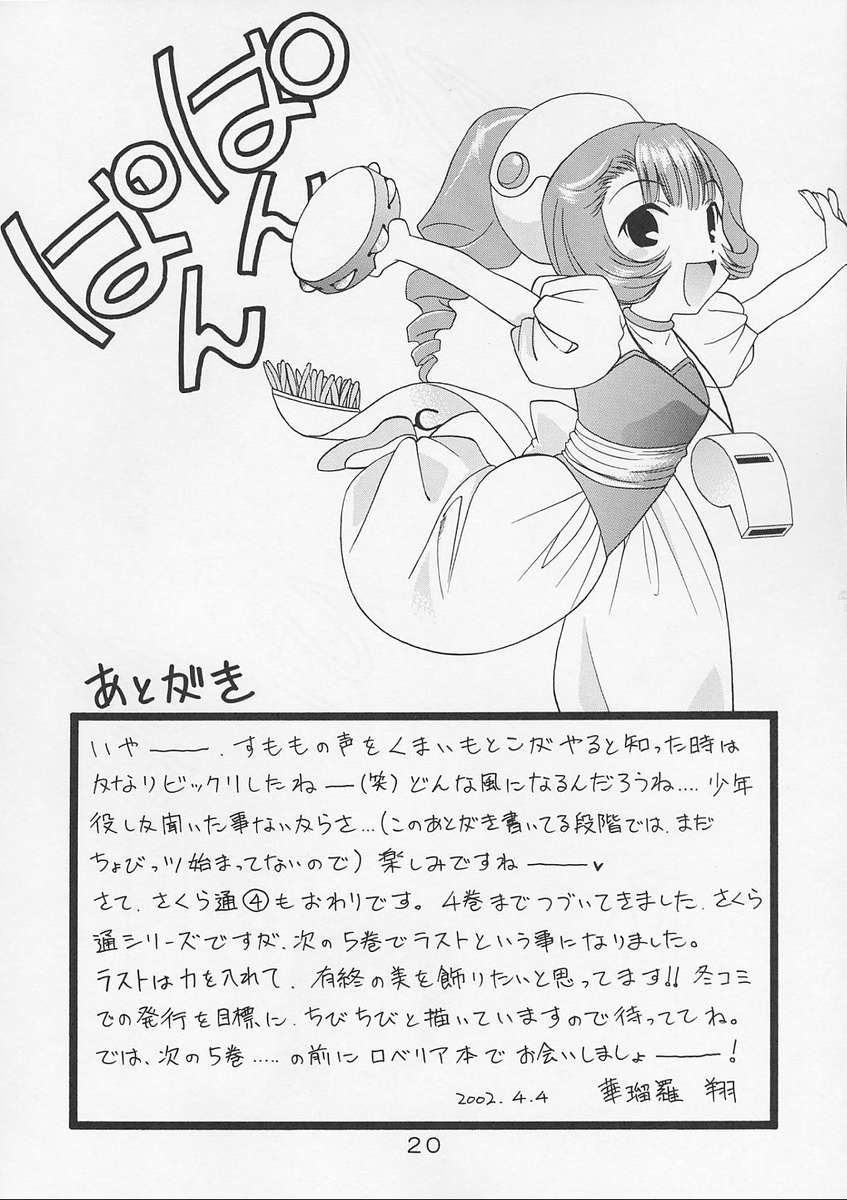 ぱんぱん
ぱぱん
あとがき
いや――、すももの声をくまいもとこがやると知った時は
かなりビックリしたねー(笑)どんな風になるんだろうね....少年
役しか聞いた事ないからさ...(このあとがき書いてる段階では、まだ
ちょびっツ始まってないので)楽しみですね――♥
さて、さくら通④もおわりです。4巻までつづいてきました、さくら
通シリーズですが、次の5巻でラストという事になりました。
ラストは力を入れて、有終の美を飾りたいと思ってます!!冬コミ
での発行を目標に、ちびちびと描いていますので待っててね。
では、次の5巻.....の前にロベリア本でお会いしましょ――!
2002.4.4 華瑠羅 翔
20